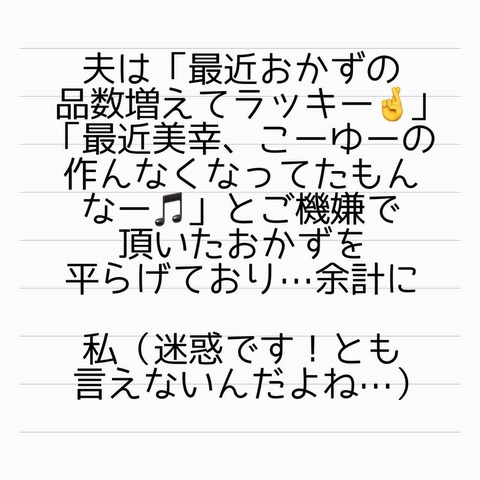 夫は「最近おかずの
品数増えてラッキー🤞」
「最近美幸、こーゆーの
作んなくなってたもん
なー🎵」とご機嫌で
頂いたおかずを
平らげており…余計に
私（迷惑です！とも
言えないんだよね…）